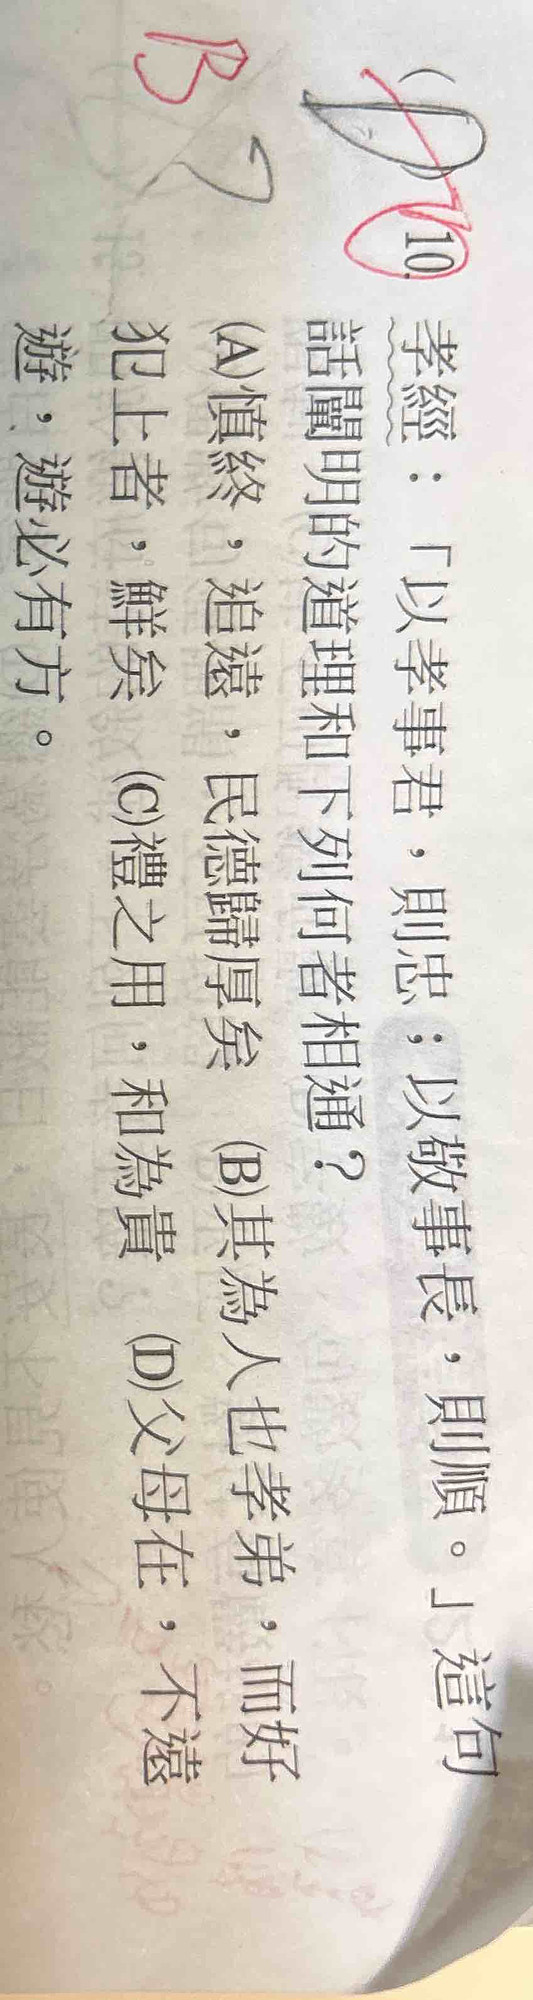 (D)10.孝經：「以孝事君，則忠；以敬事長，則順。」這句
話闡明的道理和下列何者相通？
B ?
(A)慎終，追遠，民德歸厚矣 (B)其為人也孝弟，而好
犯上者，鮮矣 (C)禮之用，和為貴 (D)父母在，不遠
遊，遊必有方。